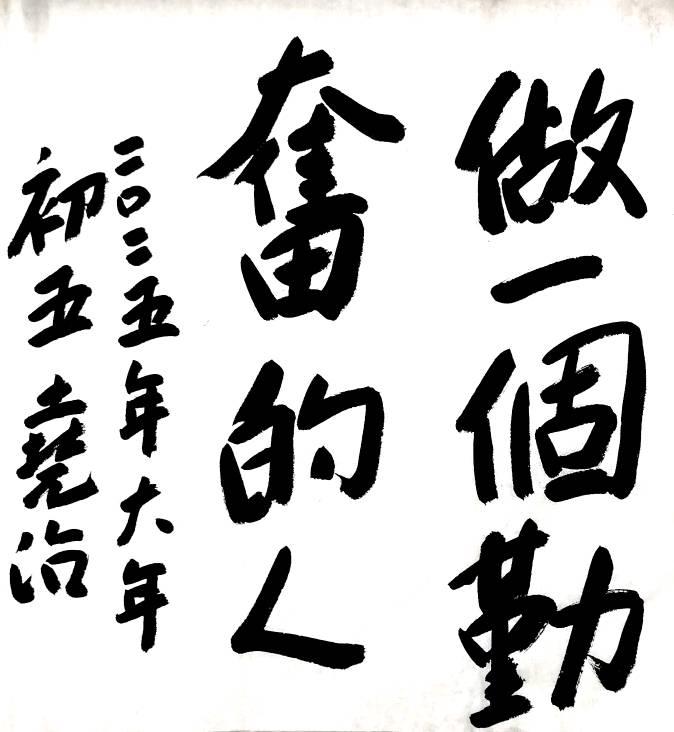 做一個勤
奮的人
二〇二五年大年
初五堯治